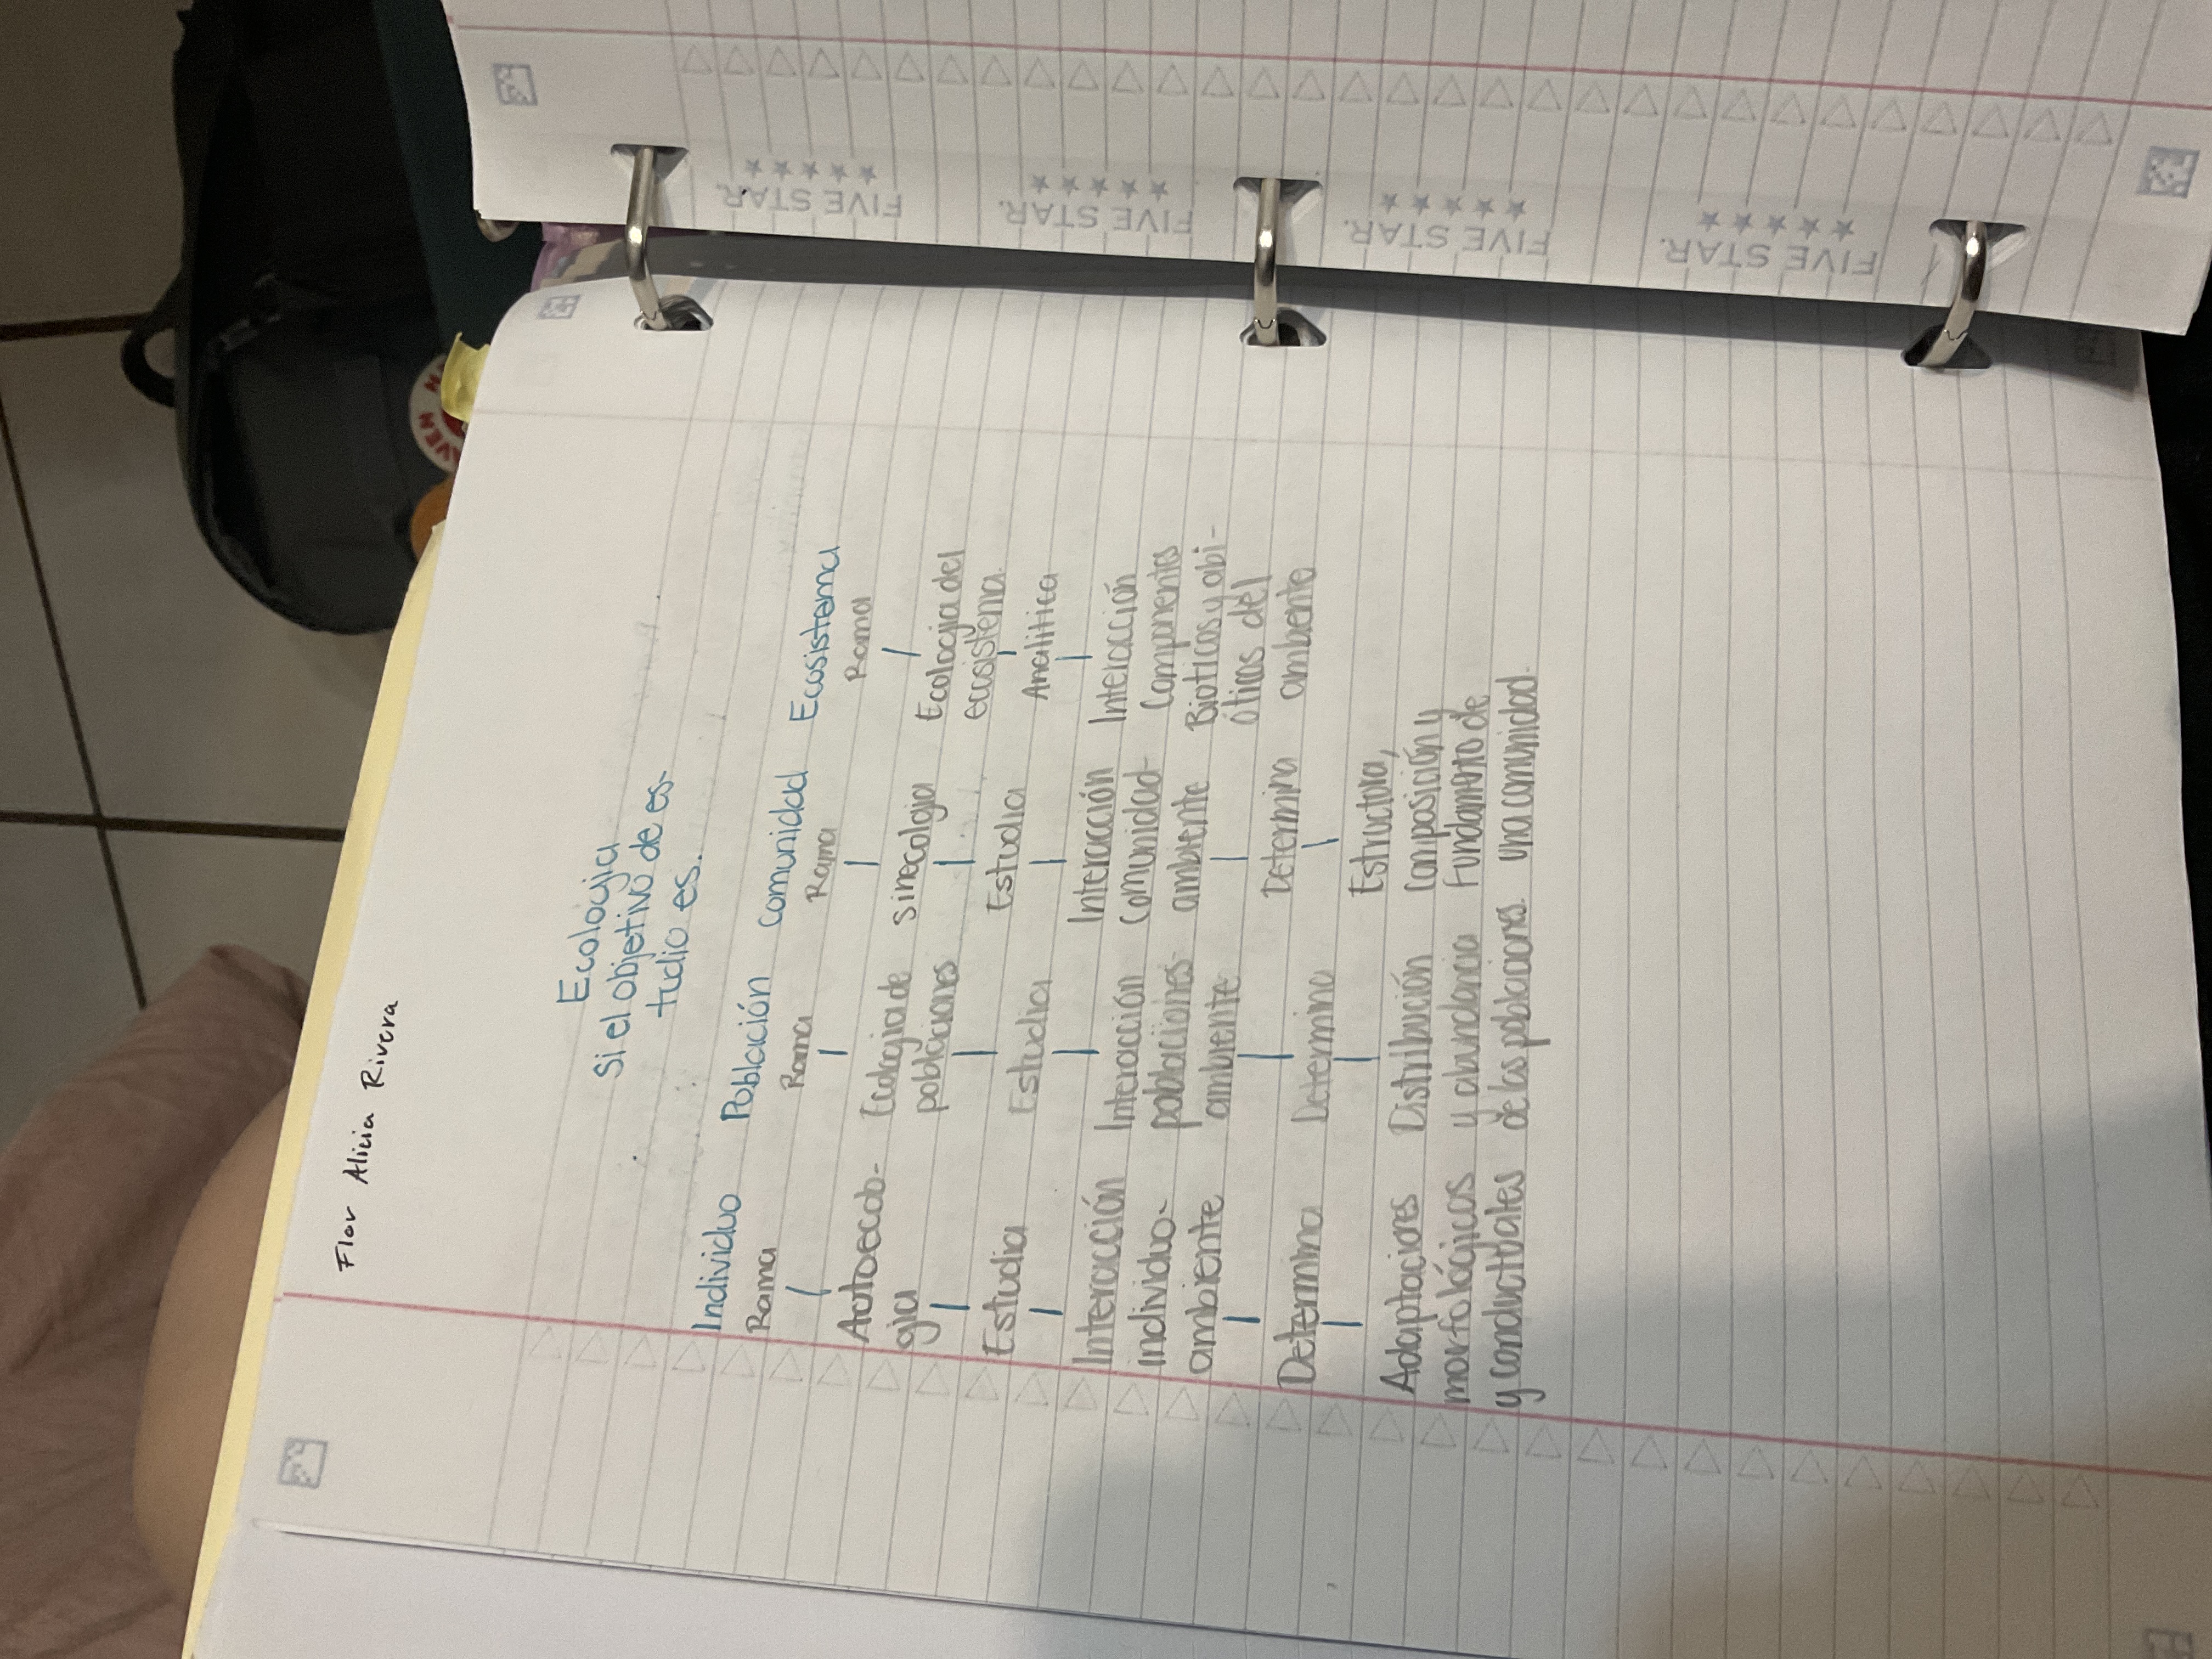 Flor Alicia Rivera
Ecología
Si el objetivo de es-
tudio es.
Individuo Población Comunidad Ecosistema
Rama Rama Rama Rama
Autoecolo-
gía
Estudia
Interacción
individuo-
ambiente
Determina
Adaptaciones
morfológicas
y conductuales
Ecología de
poblaciones
Estudia
Interacción
poblaciones-
ambiente
Determina
Distribución
y abundancia
de las poblaciones.
sinecología
Estudia
Interacción
Comunidad-
ambiente
Determina
Estructura,
composición y
Fundamento de
una comunidad.
Ecología del
ecosistema
Analitica
Interacción
Componentes
Bioticos y abi-
óticos del
ambiento
FIVE STAR.
FIVE STAR.
FIVE STAR.
FIVE STAR.